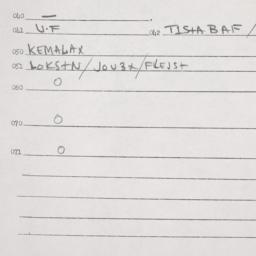 040 —
041 V.F 042 TISTABAF/
050 KEMALAX
052 LOKSTN/JOU3X/FLEJST
060 0
070 0
071 0